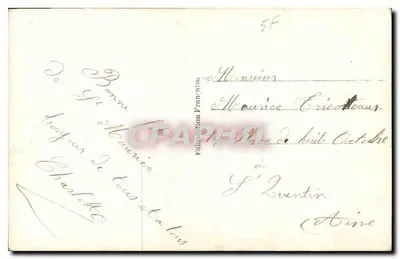 5F
Bonne fête
de St Maurice
de tous et à tous
Charlotte
Fabrication Française
CPAPHIL
Monsieur
Maurice Tricoteaux
Rue de huit Octobre
à
St Quentin
Aisne